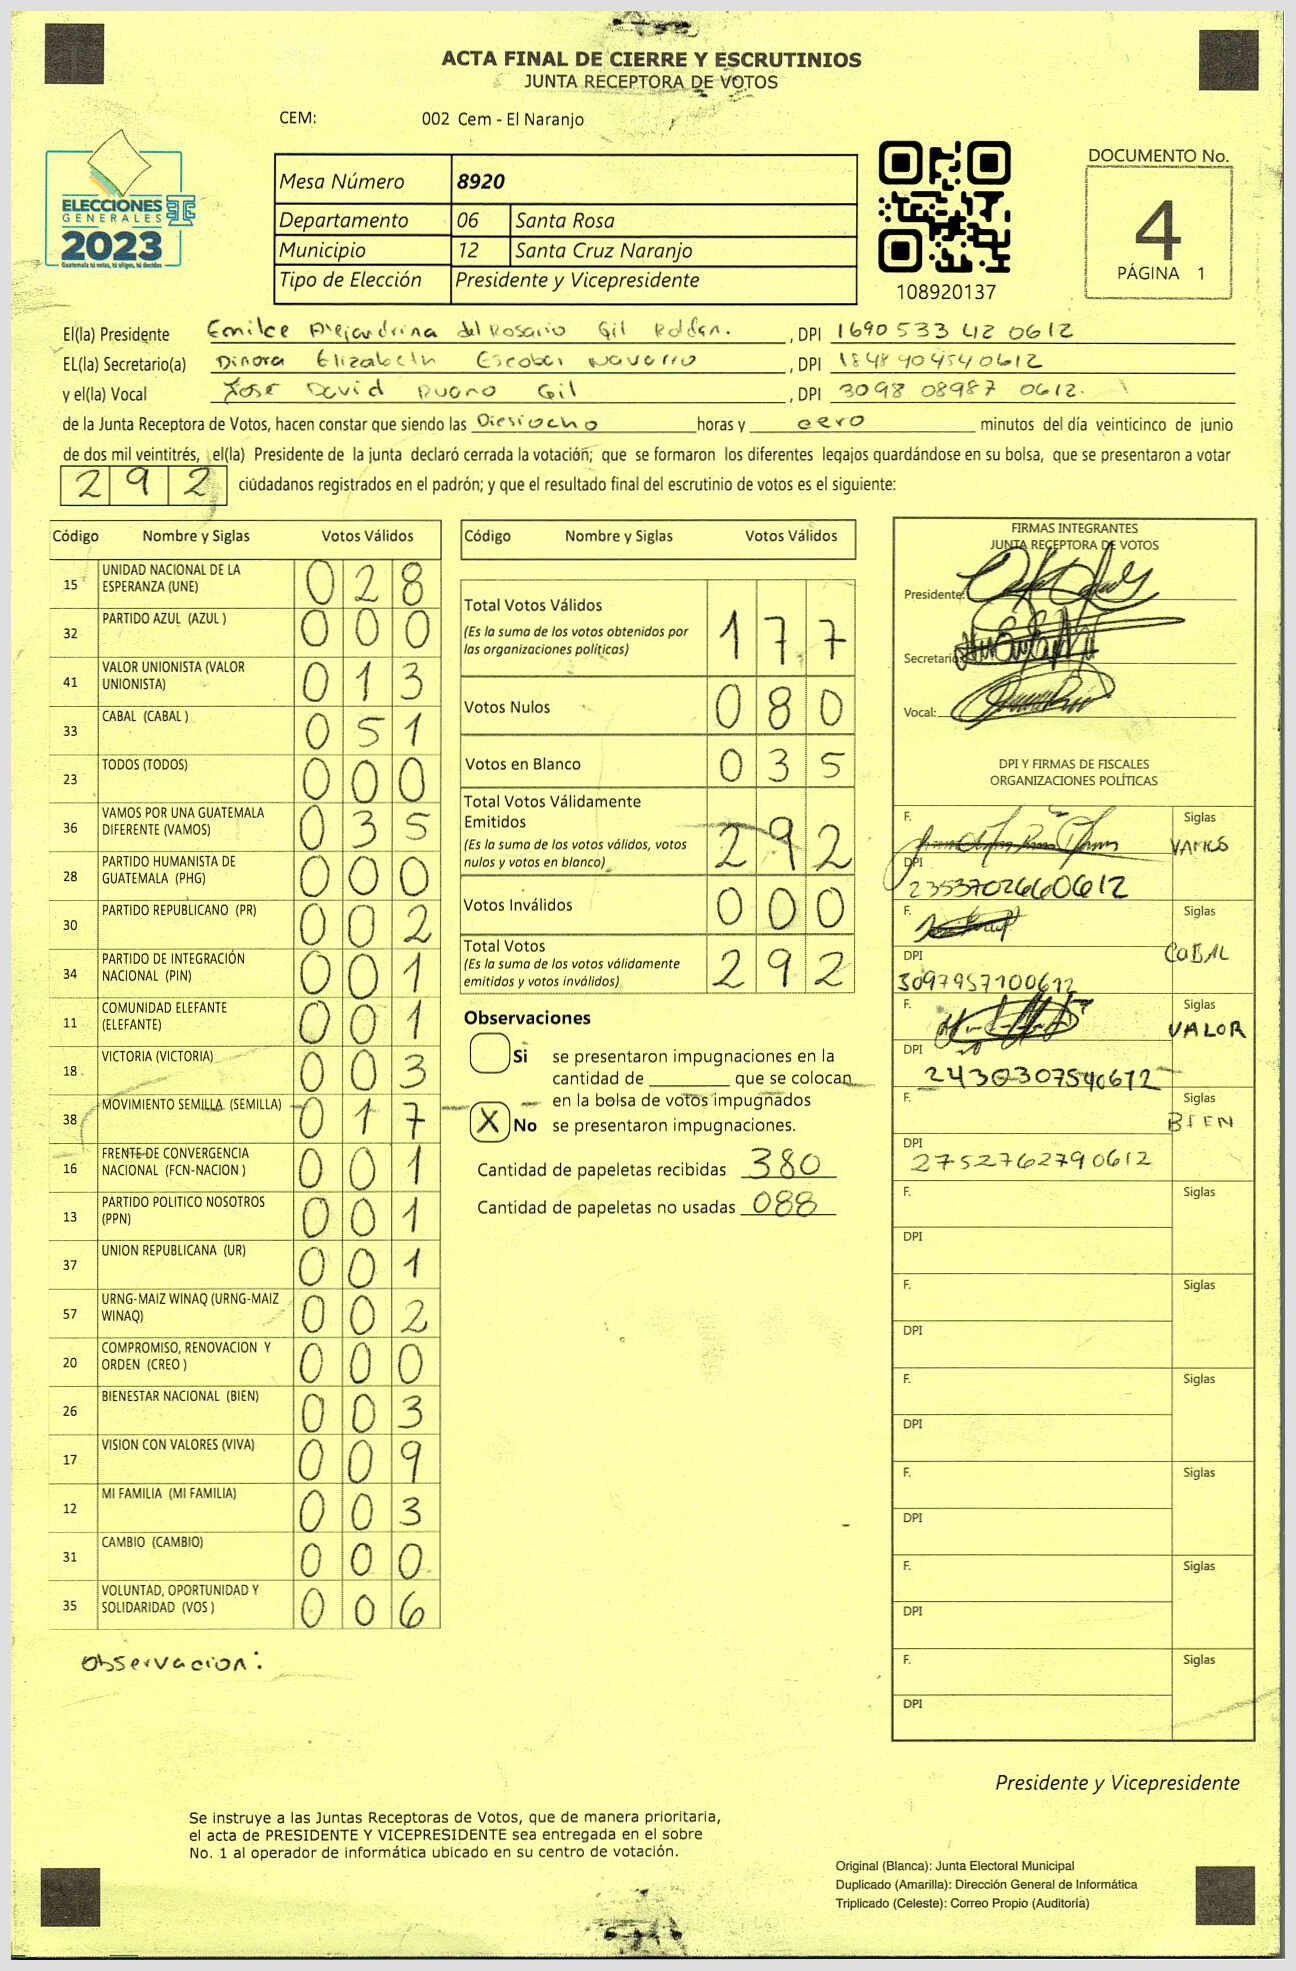 ACTA FINAL DE CIERRE Y ESCRUTINIOS
JUNTA RECEPTORA DE VOTOS
CEM: 002 Cem - El Naranjo
ELECCIONES
GENERALES
2023
Guatemala tú votas, tú eliges, tú decides
Mesa Número 8920
Departamento 06 Santa Rosa
Municipio 12 Santa Cruz Naranjo
Tipo de Elección Presidente y Vicepresidente
108920137
DOCUMENTO No.
4
PÁGINA 1
El(la) Presidente Emilce Alejandrina del Rosario Gil Roldan. , DPI 1690 533 412 0612
EL(la) Secretario(a) Dinora Elizabeth Escobar Navarro , DPI 1848 90454 0612
y el(la) Vocal Jose David Ruano Gil , DPI 3098 08987 0612.
de la Junta Receptora de Votos, hacen constar que siendo las Diesiocho horas y cero minutos del día veinticinco de junio
de dos mil veintitrés, el(la) Presidente de la junta declaró cerrada la votación; que se formaron los diferentes legajos guardándose en su bolsa, que se presentaron a votar
292 ciudadanos registrados en el padrón; y que el resultado final del escrutinio de votos es el siguiente:
Código Nombre y Siglas Votos Válidos
15 UNIDAD NACIONAL DE LA ESPERANZA (UNE) 028
32 PARTIDO AZUL (AZUL ) 000
41 VALOR UNIONISTA (VALOR UNIONISTA) 013
33 CABAL (CABAL ) 051
23 TODOS (TODOS) 000
36 VAMOS POR UNA GUATEMALA DIFERENTE (VAMOS) 035
28 PARTIDO HUMANISTA DE GUATEMALA (PHG) 000
30 PARTIDO REPUBLICANO (PR) 002
34 PARTIDO DE INTEGRACIÓN NACIONAL (PIN) 001
11 COMUNIDAD ELEFANTE (ELEFANTE) 001
18 VICTORIA (VICTORIA) 003
38 MOVIMIENTO SEMILLA (SEMILLA) 017
16 FRENTE DE CONVERGENCIA NACIONAL (FCN-NACION ) 001
13 PARTIDO POLITICO NOSOTROS (PPN) 001
37 UNION REPUBLICANA (UR) 001
57 URNG-MAIZ WINAQ (URNG-MAIZ WINAQ) 002
20 COMPROMISO, RENOVACION Y ORDEN (CREO ) 000
26 BIENESTAR NACIONAL (BIEN) 003
17 VISION CON VALORES (VIVA) 009
12 MI FAMILIA (MI FAMILIA) 003
31 CAMBIO (CAMBIO) 000
35 VOLUNTAD, OPORTUNIDAD Y SOLIDARIDAD (VOS ) 006
Observacion:
Código Nombre y Siglas Votos Válidos
Total Votos Válidos 177
(Es la suma de los votos obtenidos por
las organizaciones políticas)
Votos Nulos 080
Votos en Blanco 035
Total Votos Válidamente
Emitidos 292
(Es la suma de los votos válidos, votos
nulos y votos en blanco)
Votos Inválidos 000
Total Votos 292
(Es la suma de los votos válidamente
emitidos y votos inválidos)
Observaciones
Si se presentaron impugnaciones en la
cantidad de ________ que se colocan
en la bolsa de votos impugnados
X No se presentaron impugnaciones.
Cantidad de papeletas recibidas 380
Cantidad de papeletas no usadas 088
FIRMAS INTEGRANTES
JUNTA RECEPTORA DE VOTOS
Presidente:
Secretario:
Vocal:
DPI Y FIRMAS DE FISCALES
ORGANIZACIONES POLÍTICAS
F. Siglas VAMOS
DPI 2353702660612
F. Siglas CABAL
DPI 3097957100612
F. Siglas VALOR
DPI 2430307540612
F. Siglas BIEN
DPI 2752762790612
F. Siglas
DPI
F. Siglas
DPI
F. Siglas
DPI
F. Siglas
DPI
F. Siglas
DPI
F. Siglas
DPI
Presidente y Vicepresidente
Se instruye a las Juntas Receptoras de Votos, que de manera prioritaria,
el acta de PRESIDENTE Y VICEPRESIDENTE sea entregada en el sobre
No. 1 al operador de informática ubicado en su centro de votación.
Original (Blanca): Junta Electoral Municipal
Duplicado (Amarilla): Dirección General de Informática
Triplicado (Celeste): Correo Propio (Auditoría)